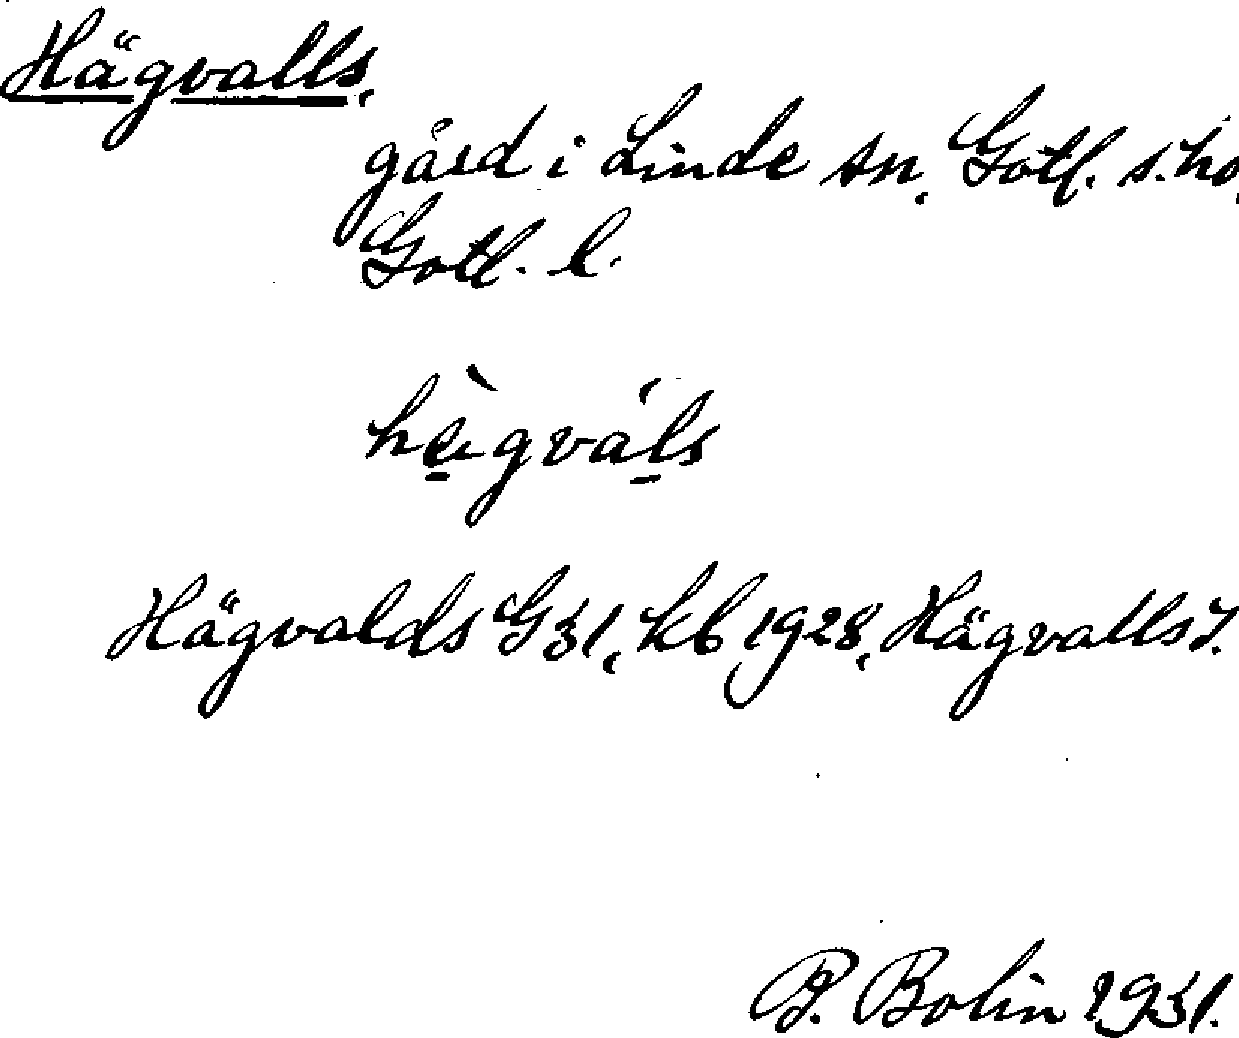 Hägvalls,
gård i Linde sn, Gotl. s. hd,
Gotl. l.
hègváls
Hägvalds G31, kb 1928, Hägvalls J.
B. Bolin 1931.